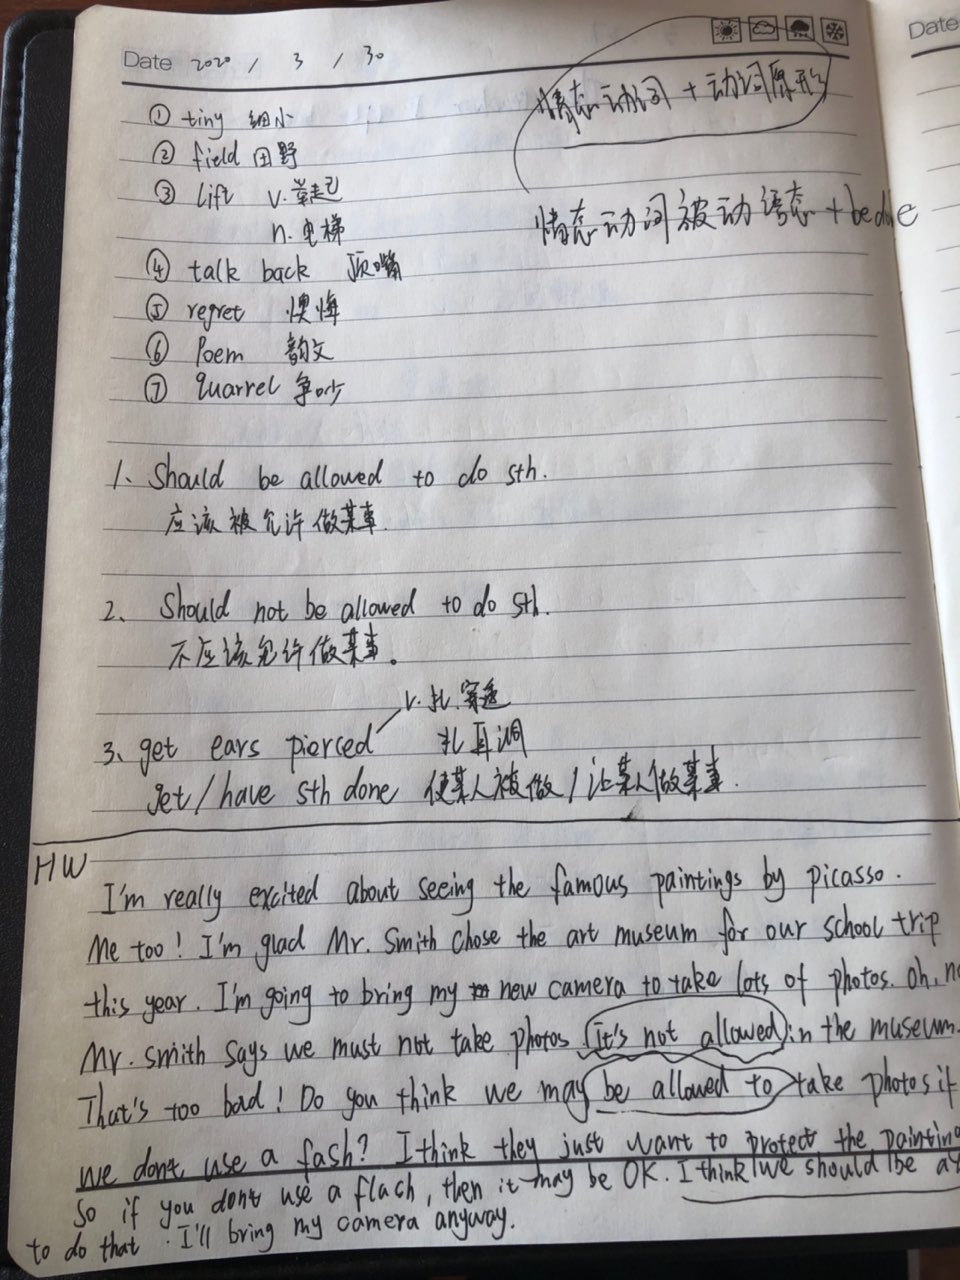 Date 2020 / 3 / 30
Date
情态动词 + 动词原形
① tiny 细小
② field 田野
③ lift v. 举起
n. 电梯
情态动词被动语态 + be done
④ talk back 顶嘴
⑤ regret 懊悔
⑥ Poem 韵文
⑦ quarrel 争吵
1、Should be allowed to do sth.
应该被允许做某事.
2、Should not be allowed to do sth.
不应该允许做某事。
v. 扎.穿透
3、get ears pierced 扎耳洞
get/have sth done 使某人被做/让某人做某事.
HW
I'm really excited about seeing the famous paintings by picasso.
Me too! I'm glad Mr. Smith chose the art museum for our school trip
this year. I'm going to bring my new camera to take lots of photos. oh, no
Mr. smith says we must not take photos (it's not allowed) in the museum.
That's too bad! Do you think we may be allowed to take photos if
we don't use a fash? I think they just want to protect the painting
So if you don't use a flash, then it may be OK. I think we should be
to do that. I'll bring my camera anyway.